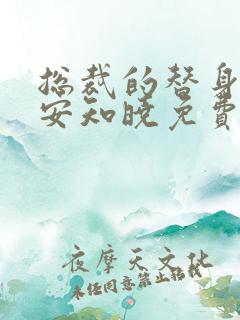 总裁的替身
安知晚免费
夜摩天文化
未经同意禁止转载